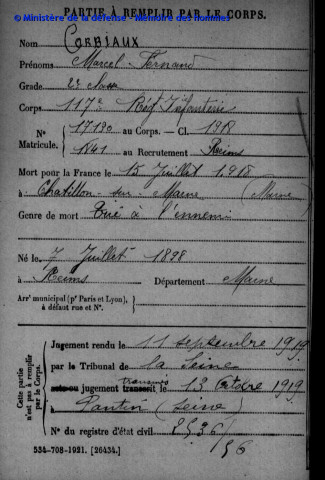 PARTIE À REMPLIR PAR LE CORPS.
© Ministère de la défense - Mémoire des hommes
Nom CORBIAUX
Prénoms Marcel - Fernand
Grade 2e classe
Corps 117e Rég Infanterie
N° 17130 au Corps. — Cl. 1918
Matricule. 1841 au Recrutement Reims
Mort pour la France le 15 Juillet 1918
à Chatillon - sur - Marne (Marne)
Genre de mort Tué à l'ennemi
Né le 7 Juillet 1898
à Reims Département Marne
Arrt municipal (pr Paris et Lyon),
à défaut rue et N°.
Cette partie n'est pas à remplir par le Corps.
Jugement rendu le 11 septembre 1919
par le Tribunal de la Seine
acte ou jugement transcrit le 13 octobre 1919
à Pantin (Seine)
N° du registre d'état civil 2536/96
534-708-1921. [26434.]